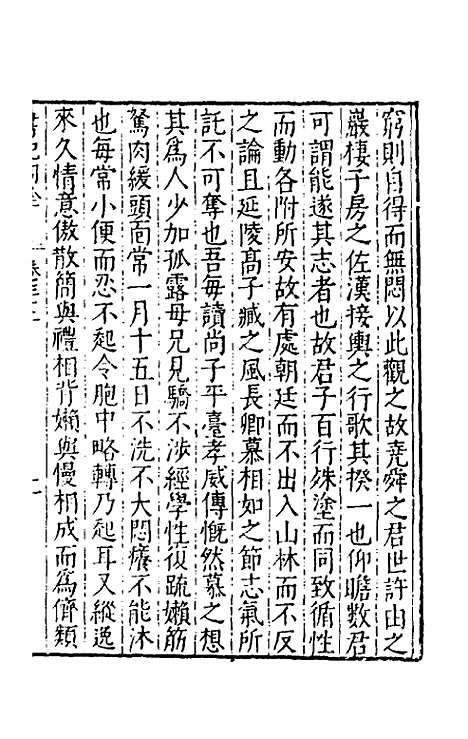 窮則自得而無悶以此觀之故堯舜之君世許由之
巖棲子房之佐漢接輿之行歌其揆一也仰瞻數君
可謂能遂其志者也故君子百行殊塗而同致循性
而動各附所安故有處朝廷而不出入山林而不反
之論且延陵髙子臧之風長卿慕相如之節志氣所
託不可奪也吾每讀尚子平臺孝威傳慨然慕之想
其爲人少加孤露母兄見驕不涉經學性復踈嬾筋
駑肉緩頭面常一月十五日不洗不大悶癢不能沐
也每常小便而忍不起令胞中略轉乃起耳又縱逸
來久情意傲散簡與禮相背嬾與慢相成而爲儕類